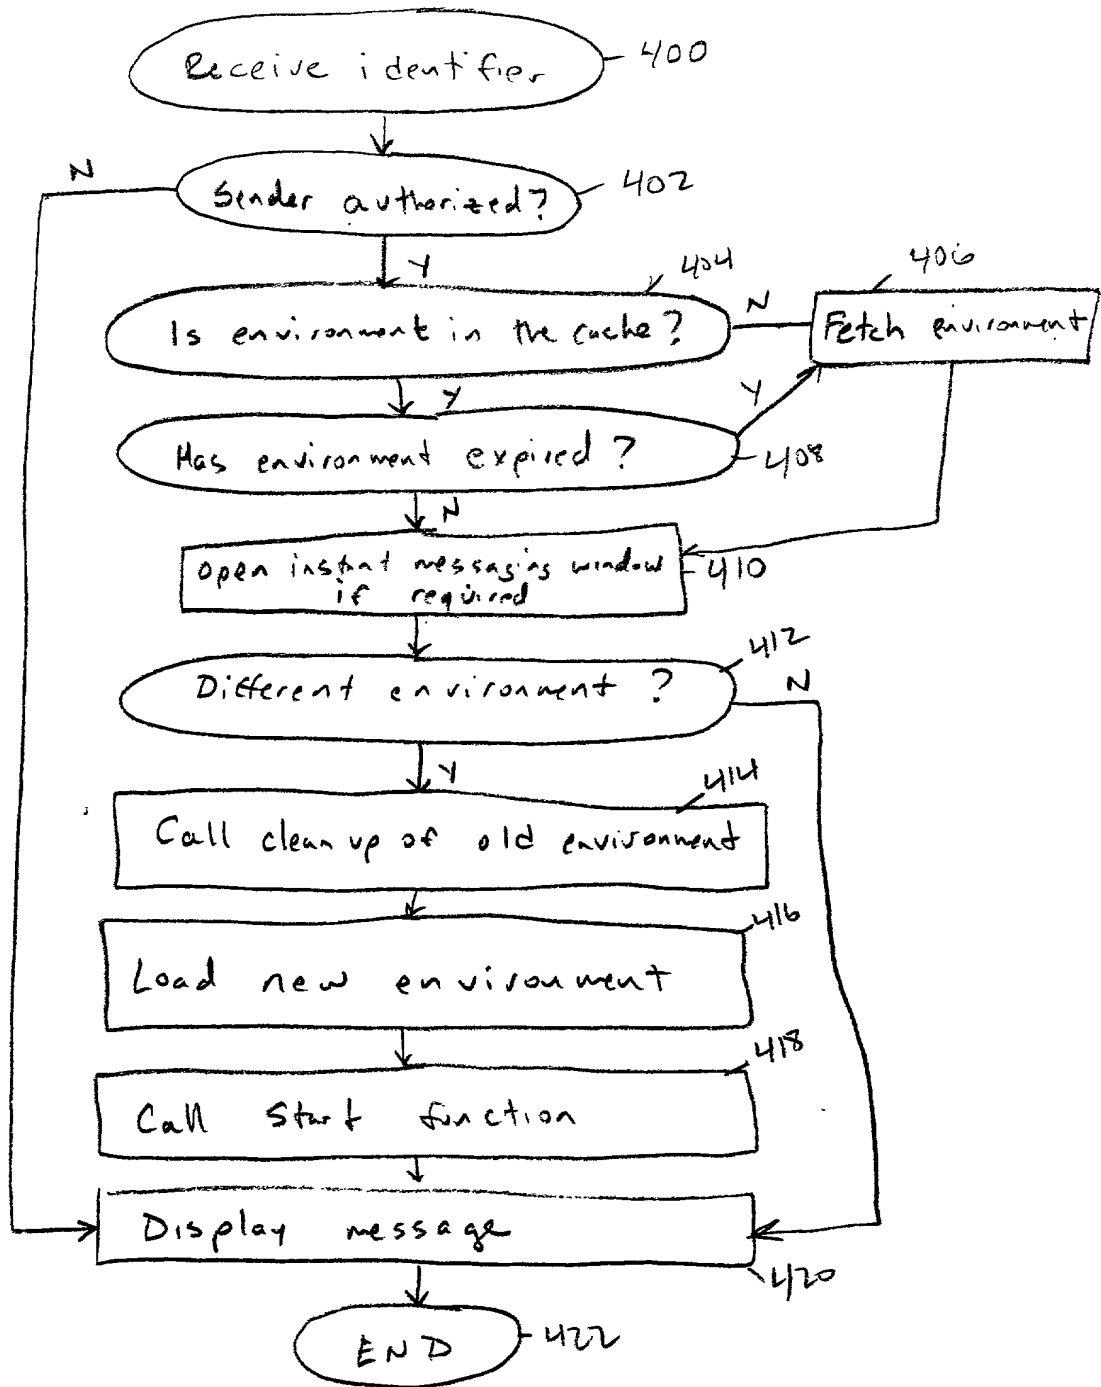 Receive identifier
400
N
Sender authorized?
402
Y
404
406
Is environment in the cache?
N
Fetch environment
Y
Y
Has environment expired?
408
N
open instant messaging window
if required
410
412
Different environment ?
N
Y
414
Call clean up of old environment
416
Load new environment
418
Call start function
Display message
420
END
422